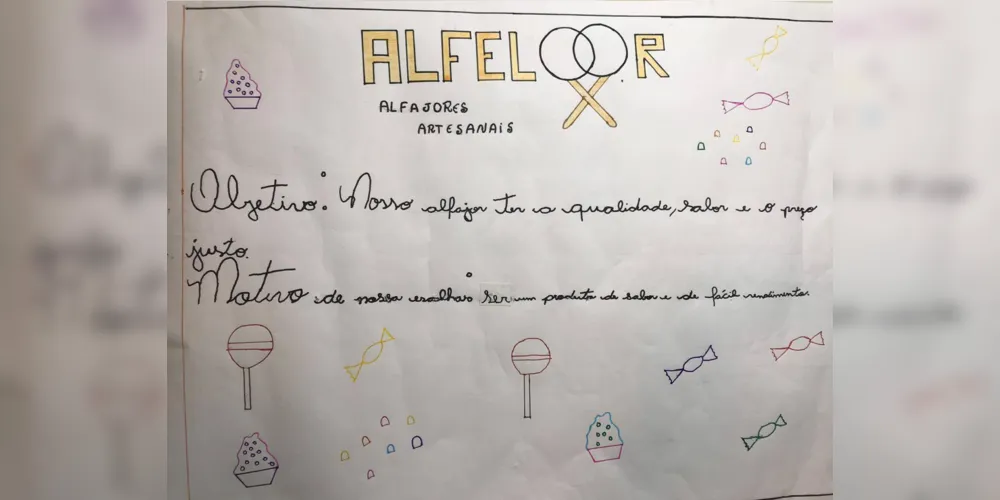 ALFELOOR
ALFAJORES
ARTESANAIS
Objetivo: Nosso alfajor ter a qualidade, sabor e o preço
justo.
Motivo de nossa escolha: ser um produto de sabor e de fácil rendimento.